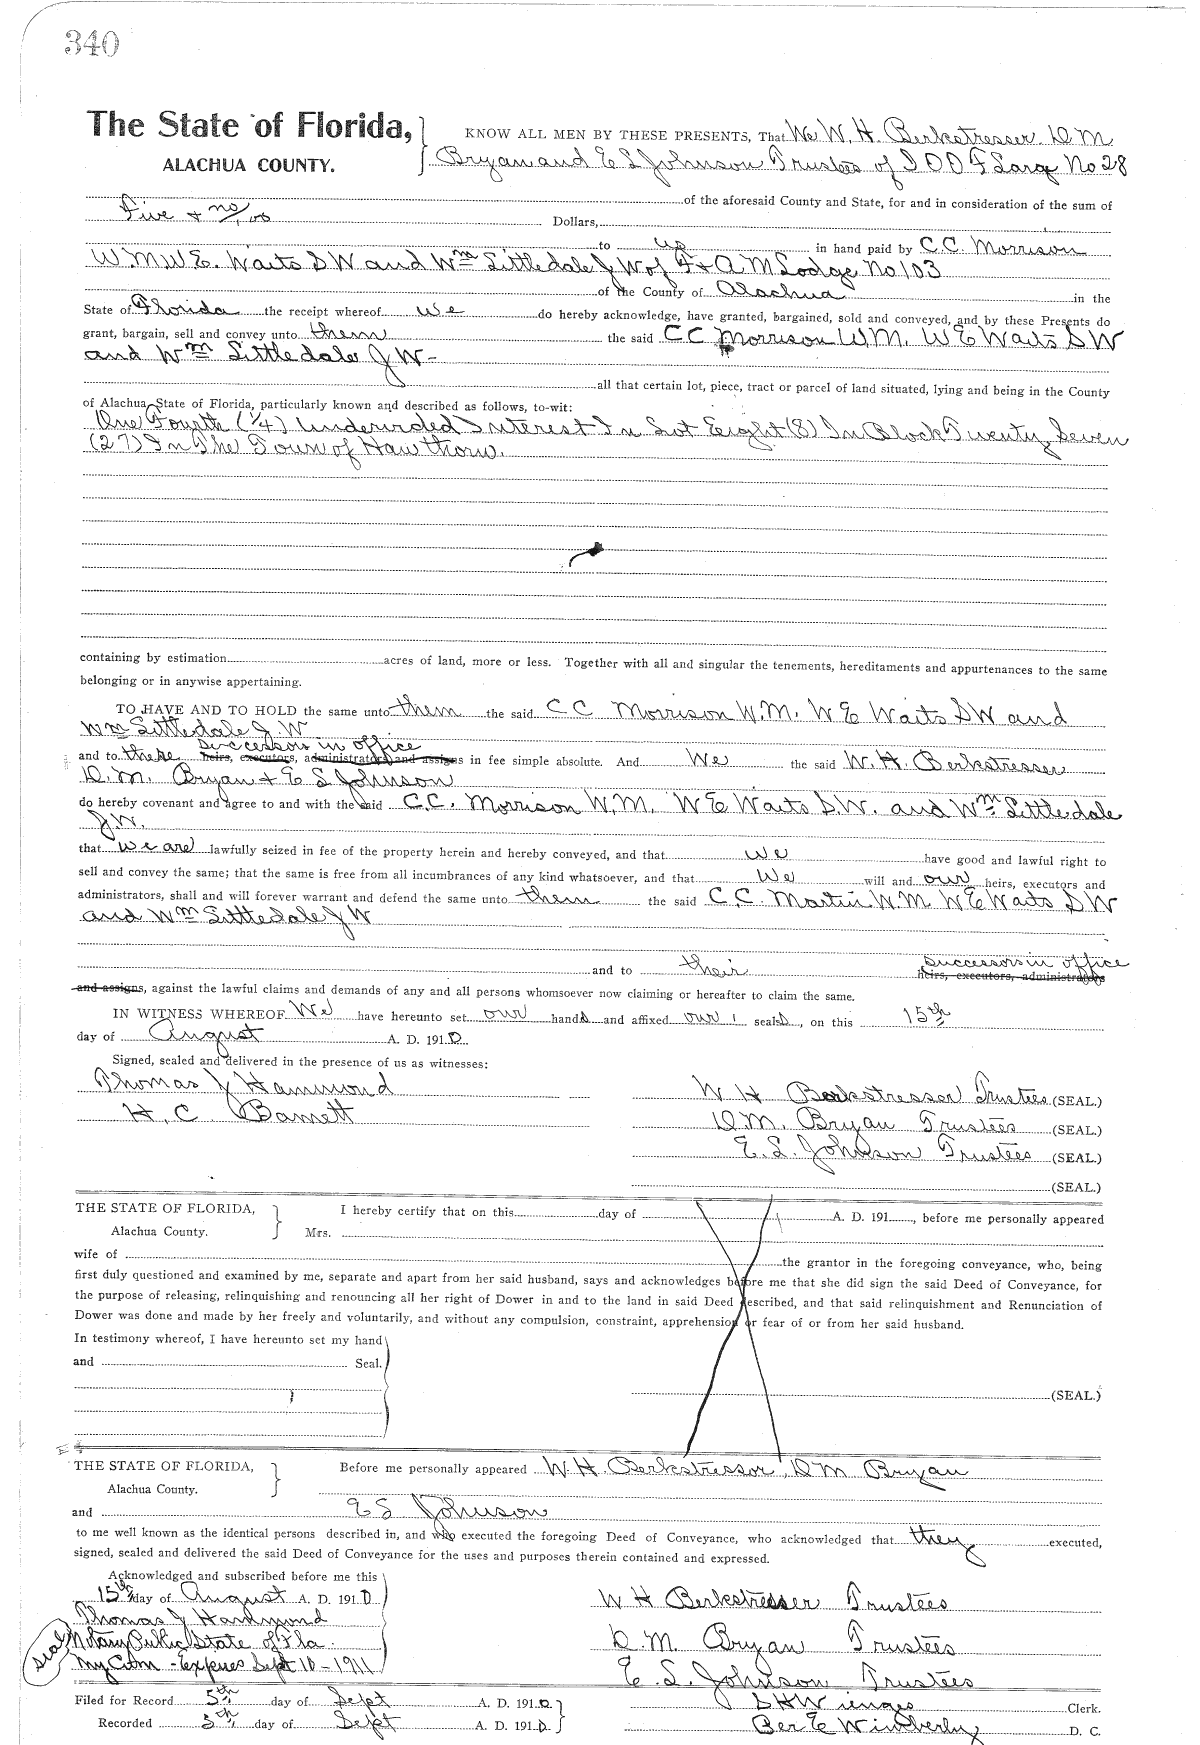 340
The State of Florida, KNOW ALL MEN BY THESE PRESENTS, That We W. H. Berkstresser. D M
ALACHUA COUNTY. Bryan and E S Johnson Trustees of I O O F Large No 28
of the aforesaid County and State, for and in consideration of the sum of
Five + no/00 Dollars,
to us in hand paid by C. C. Morrison
W. M. W E. Waits S W and Wm Littledale J W of F + A M Lodge No 103
of the County of Alachua in the
State of Florida the receipt whereof we do hereby acknowledge, have granted, bargained, sold and conveyed, and by these Presents do
grant, bargain, sell and convey unto them the said C C Morrison W M. W E Waits S W
and Wm Littledale J W -
all that certain lot, piece, tract or parcel of land situated, lying and being in the County
of Alachua, State of Florida, particularly known and described as follows, to-wit:
One Fourth (1/4) Undivided Interest In Lot Eight (8) In Block Twenty Seven
(27) In The Town of Hawthorn.
containing by estimation acres of land, more or less. Together with all and singular the tenements, hereditaments and appurtenances to the same
belonging or in anywise appertaining.
TO HAVE AND TO HOLD the same unto them the said C C Morrison W. M. W E Waits S W and
Wm Littledale J. W
successors in office
and to these heirs, executors, administrators and assigns in fee simple absolute. And We the said W. H. Berkstresser
D. M. Bryan + E S Johnson
do hereby covenant and agree to and with the said C. C. Morrison W. M. W E Waits S. W. and Wm Littledale
J. W.
that we are lawfully seized in fee of the property herein and hereby conveyed, and that we have good and lawful right to
sell and convey the same; that the same is free from all incumbrances of any kind whatsoever, and that We will and our heirs, executors and
administrators, shall and will forever warrant and defend the same unto them the said C. C. Martin W. M. W E Waits S W
and Wm Littledale J W
successors in office
and to their heirs, executors, administrators
and assigns, against the lawful claims and demands of any and all persons whomsoever now claiming or hereafter to claim the same.
IN WITNESS WHEREOF We have hereunto set our hands and affixed our seals, on this 15th
day of August A. D. 1910.
Signed, sealed and delivered in the presence of us as witnesses:
Thomas J Hammond W H Berkstresser Trustees (SEAL.)
H. C Barnett D. M. Bryan Trustees (SEAL.)
E. S. Johnson Trustees (SEAL.)
(SEAL.)
THE STATE OF FLORIDA, I hereby certify that on this day of A. D. 191 , before me personally appeared
Alachua County. Mrs.
wife of the grantor in the foregoing conveyance, who, being
first duly questioned and examined by me, separate and apart from her said husband, says and acknowledges before me that she did sign the said Deed of Conveyance, for
the purpose of releasing, relinquishing and renouncing all her right of Dower in and to the land in said Deed described, and that said relinquishment and Renunciation of
Dower was done and made by her freely and voluntarily, and without any compulsion, constraint, apprehension or fear of or from her said husband.
In testimony whereof, I have hereunto set my hand
and Seal.
(SEAL.)
THE STATE OF FLORIDA, Before me personally appeared W. H. Berkstressor, D M Bryan
Alachua County.
and E S Johnson
to me well known as the identical persons described in, and who executed the foregoing Deed of Conveyance, who acknowledged that they executed,
signed, sealed and delivered the said Deed of Conveyance for the uses and purposes therein contained and expressed.
Acknowledged and subscribed before me this
15th day of August A. D. 1910 W H Berkstresser Trustees
Thomas J Hammond
Seal Notary Public State of Fla. D. M. Bryan Trustees
My Com - Expires Sept 10 - 1911 E. S. Johnson Trustees
Filed for Record 5th day of Sept A. D. 1910 S H Wienges Clerk.
Recorded 5th day of Sept A. D. 1910. Per E Wimberly D. C.